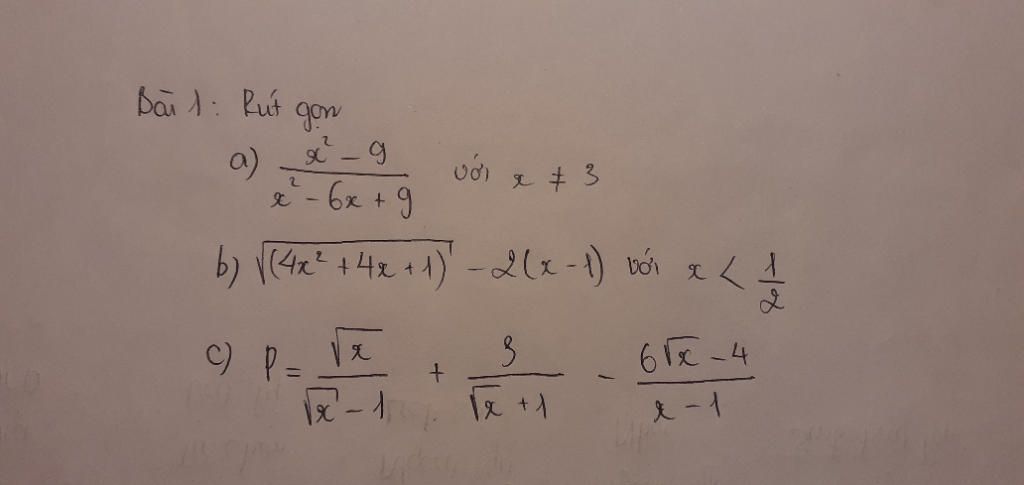 Bài 1: Rút gọn
a) \frac{x² - 9}{x² - 6x + 9} với x ≠ 3
b) √(4x² + 4x + 1) - 2(x - 1) với x < \frac{1}{2}
c) P = \frac{√x}{√x - 1} + \frac{3}{√x + 1} - \frac{6√x - 4}{x - 1}